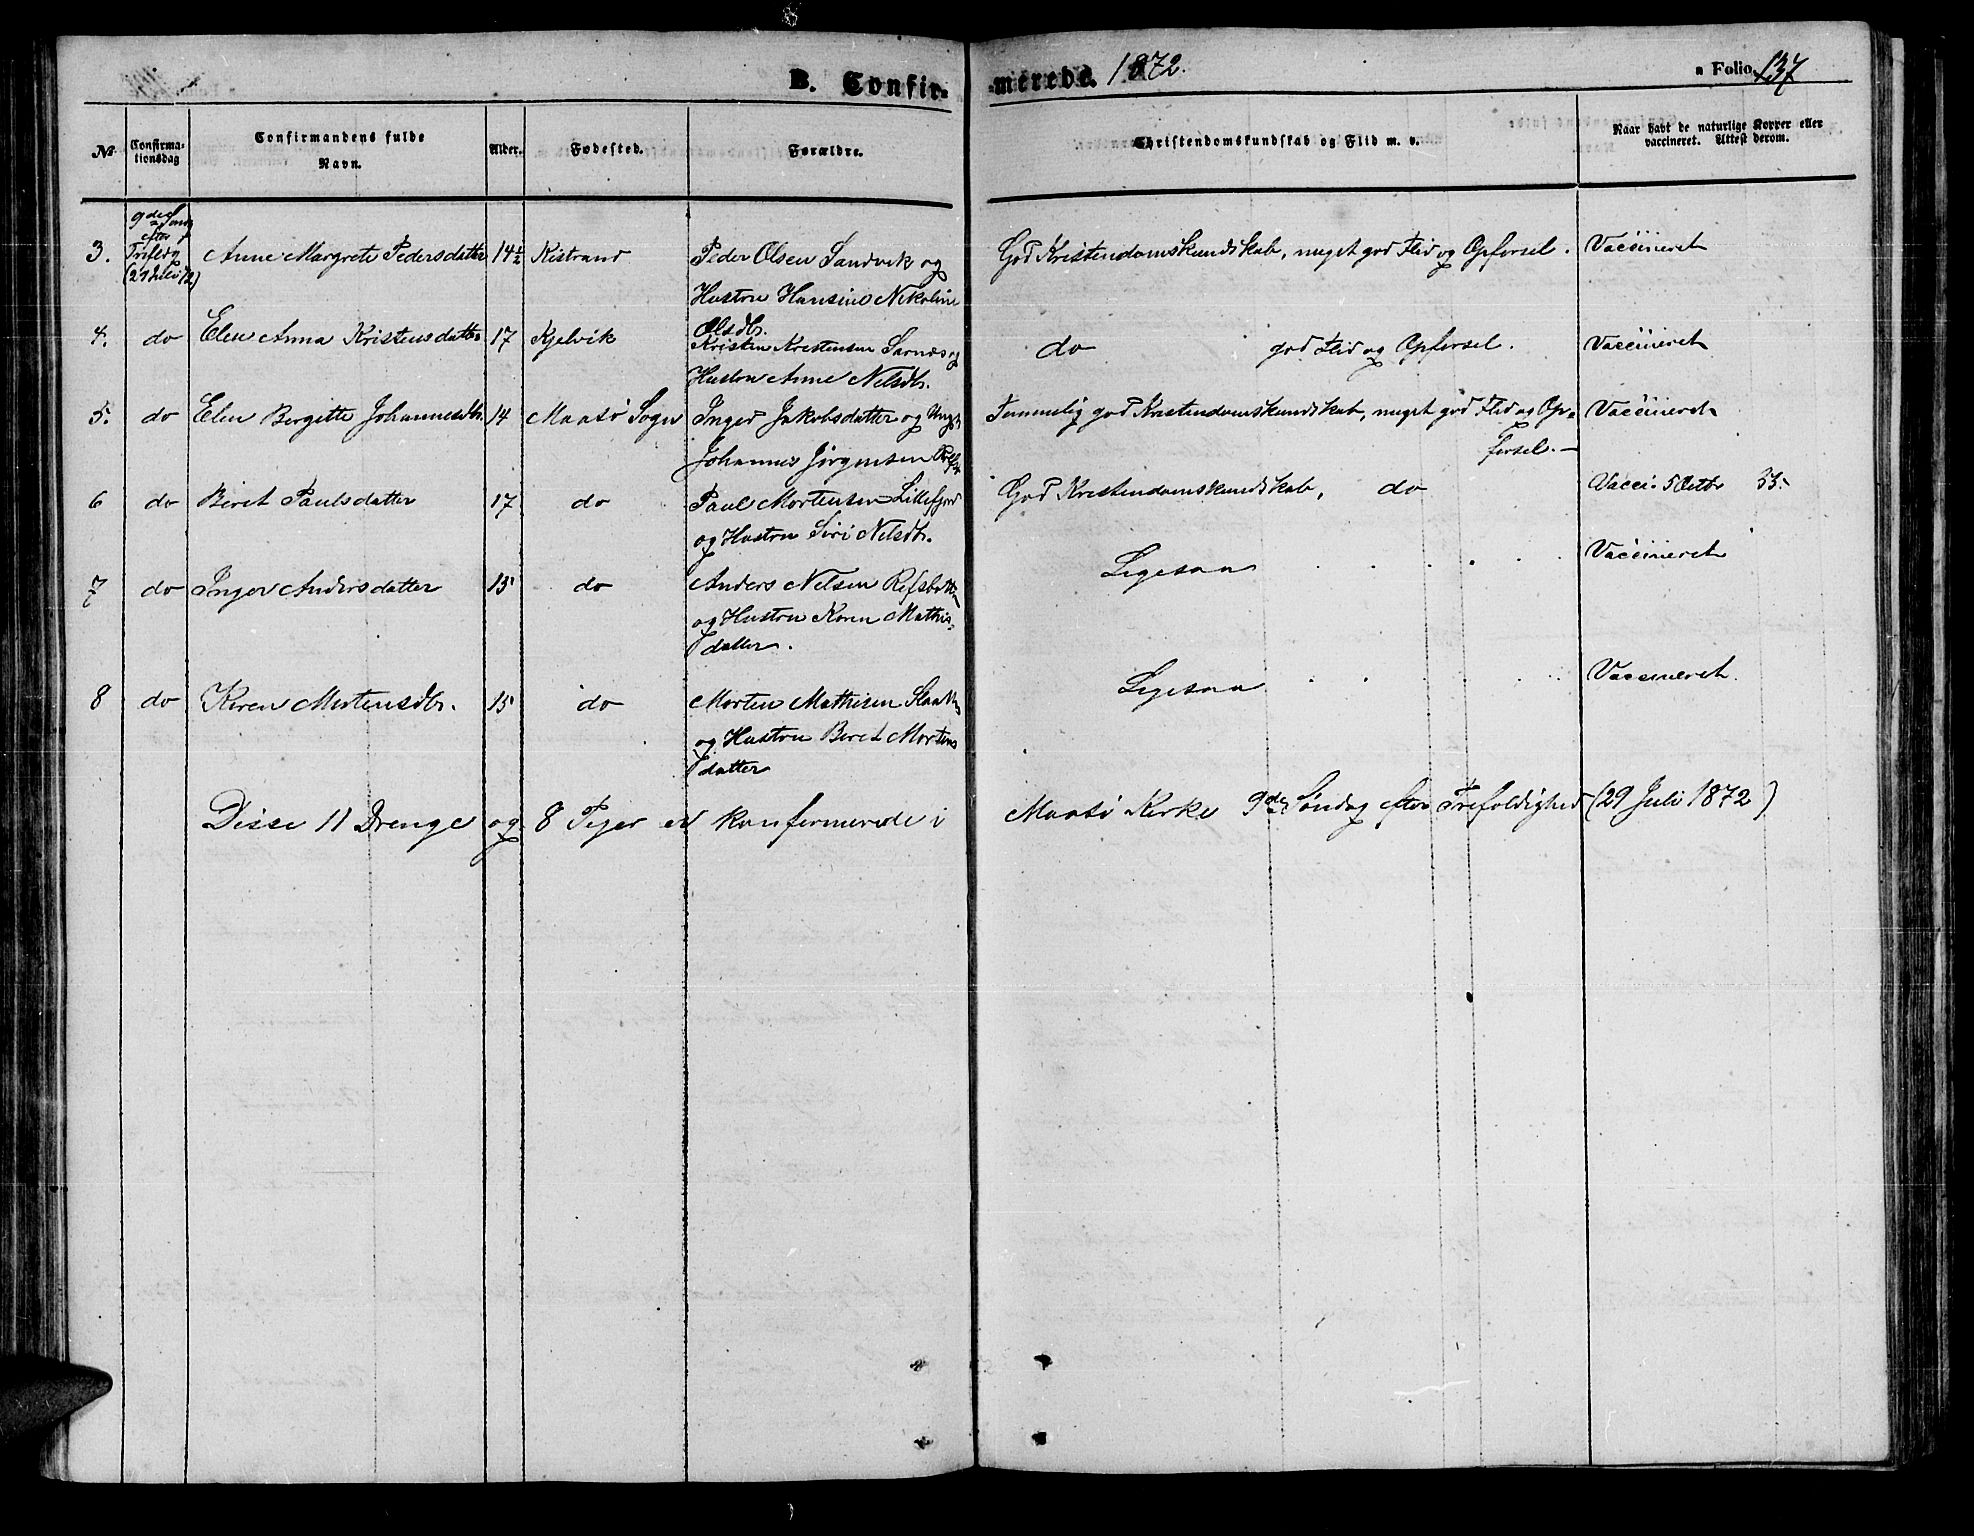 B. Confirmerede. 1872.
Folio 137
No
Confirmationsdag
Confirmandens fulde Navn.
Alder.
Fødested.
Forældre.
Christendomskundskab og Flid m. v.
Naar havt de naturlige Kopper eller vaccineret. Attest derom.
9de Sønd
efter
Trefoldg
3. Anne Margrete Pedersdatter 14½ Kistrand Peder Olsen Sandvik og God Kristendomskundskab, meget god Flid og Opførsel. Vaccineret
(29 Juli 72)
Hustru Hansine Nikoline
Olsdtr.
4. do Elen Anna Kristensdatter 17 Kjelvik Kristen Kristensen Sarnæs og do god Flid og Opførsel. Vaccineret
Hustru Anne Nelsdtr.
5. do Elen Bergitte Johannesdtr. 14 Maasø Sogn Inger Jakobsdatter og Temmelig god Kristendomskundskab, meget god Flid og Op- Vaccineret
Johannes Jørgensen førsel.
6 do Beret Paulsdatter 17 do Paul Mortensen Lillefjord God Kristendomskundskab, do Vacci. 5 Octbr 55.
og Hustru Siri Nelsdtr.
7 do Inger Andersdatter 15 do Anders Nelsen Refsbotn Ligesaa Vaccineret
og Hustru Karen Mathis-
datter.
8 do Karen Mortensdtr. 15 do Morten Mathisen Ligesaa Vaccineret.
og Hustru Beret Mortens
datter
Disse 11 Drenge og 8 Piger er konfirmerede i Maasø Kirke 9de Søndag efter Trefoldighed (29 Juli 1872)